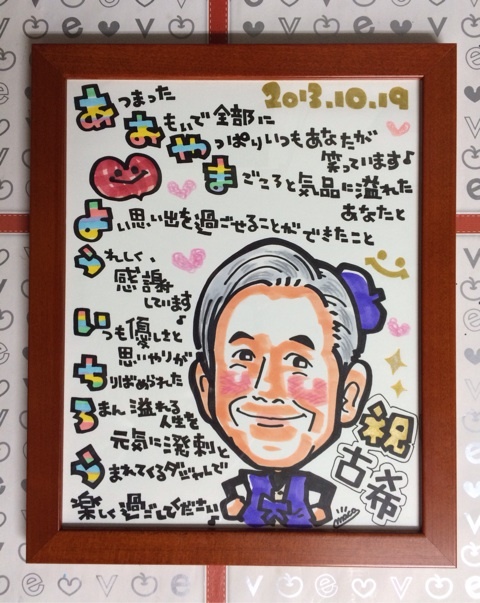 2013.10.19
あつまった
おもいで全部に
やっぱりいつもあなたが
笑っています♪
まごころと気品に溢れた
あなたと
よい思い出を過ごせることができたこと
うれしく、
感謝
しています♪
いつも優しさと
思いやりが
ちりばめられた
ろまん溢れる
人生を
元気に溌剌と
うまれてくるダジャレで
楽しく過ごしてください♪
祝
古希